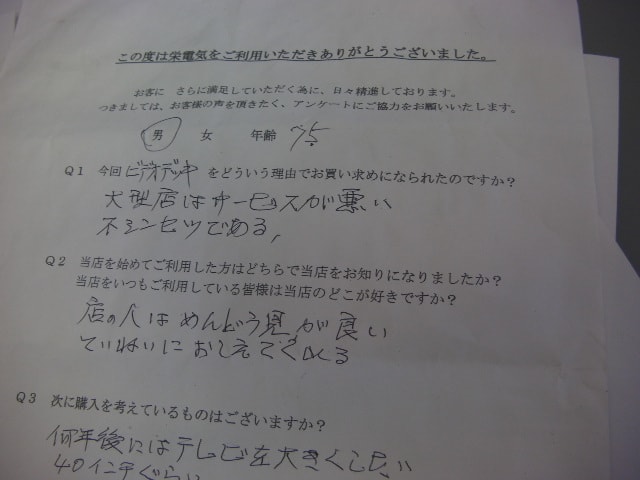 この度は栄電気をご利用いただきありがとうございました。
お客に さらに満足していただく為に、日々精進しております。
つきましては、お客様の声を頂きたく、アンケートにご協力をお願いいたします。
男 女 年齢 75
Q1 今回 ビデオデッキ をどういう理由でお買い求めになられたのですか?
大型店はサービスが悪い
不シンセツである,
Q2 当店を始めてご利用した方はどちらで当店をお知りになりましたか?
当店をいつもご利用している皆様は当店のどこが好きですか?
店の人はめんどう見が良い
ていねいにおしえてくれる
Q3 次に購入を考えているものはございますか?
何年後にはテレビを大きくしたい
40インチぐらい